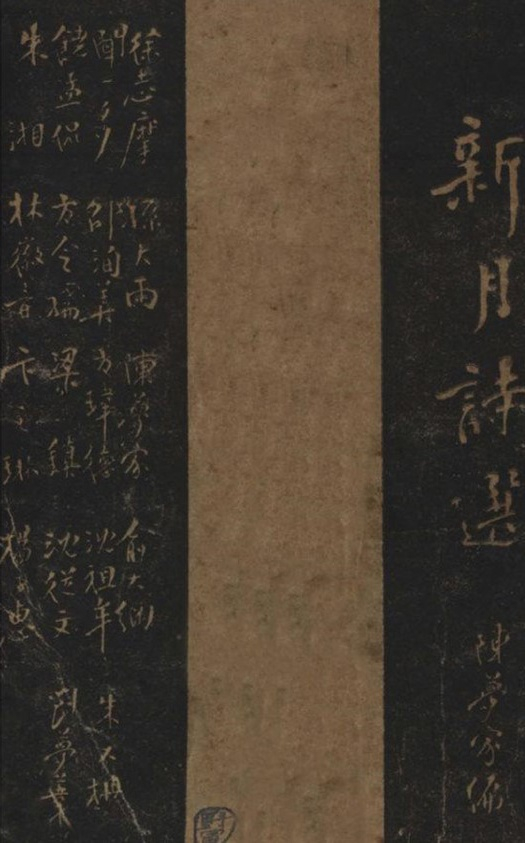 新月詩選
陳夢家編
徐志摩 孫大雨 陳夢家 俞大綱
聞一多 邵洵美 方瑋德 沈祖牟 朱大枬
饒孟侃 方令孺 梁鎮 沈從文 劉夢葦
朱湘 林徽音 卞之琳 楊子惠